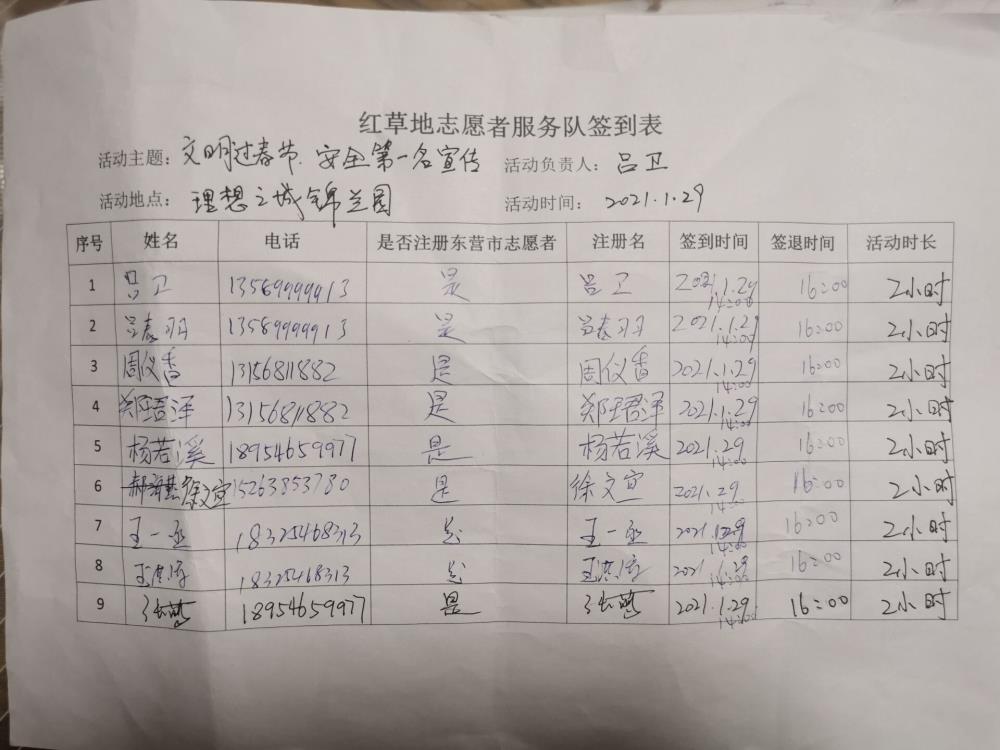 红草地志愿者服务队签到表
活动主题：文明过春节、安全第一名宣传 活动负责人：吕卫
活动地点：理想之城锦兰园 活动时间：2021.1.29
序号 姓名 电话 是否注册东营市志愿者 注册名 签到时间 签退时间 活动时长
1 吕卫 13569999913 是 吕卫 2021.1.29 14:00 16:00 2小时
2 吕春羽 13589999913 是 吕春羽 2021.1.29 14:00 16:00 2小时
3 周仪香 13156811882 是 周仪香 2021.1.29 14:00 16:00 2小时
4 郑珺泽 13156811882 是 郑珺泽 2021.1.29 14:00 16:00 2小时
5 杨若溪 18954659977 是 杨若溪 2021.29 14:00 16:00 2小时
6 徐文宣 15263853780 是 徐文宣 2021.29 14:00 16:00 2小时
7 王一丞 18325468313 是 王一丞 2021.1.29 14:00 16:00 2小时
8 18325468313 是 2021.1.29 14:00 16:00 2小时
9 18954659977 是 2021.1.29 14:00 16:00 2小时